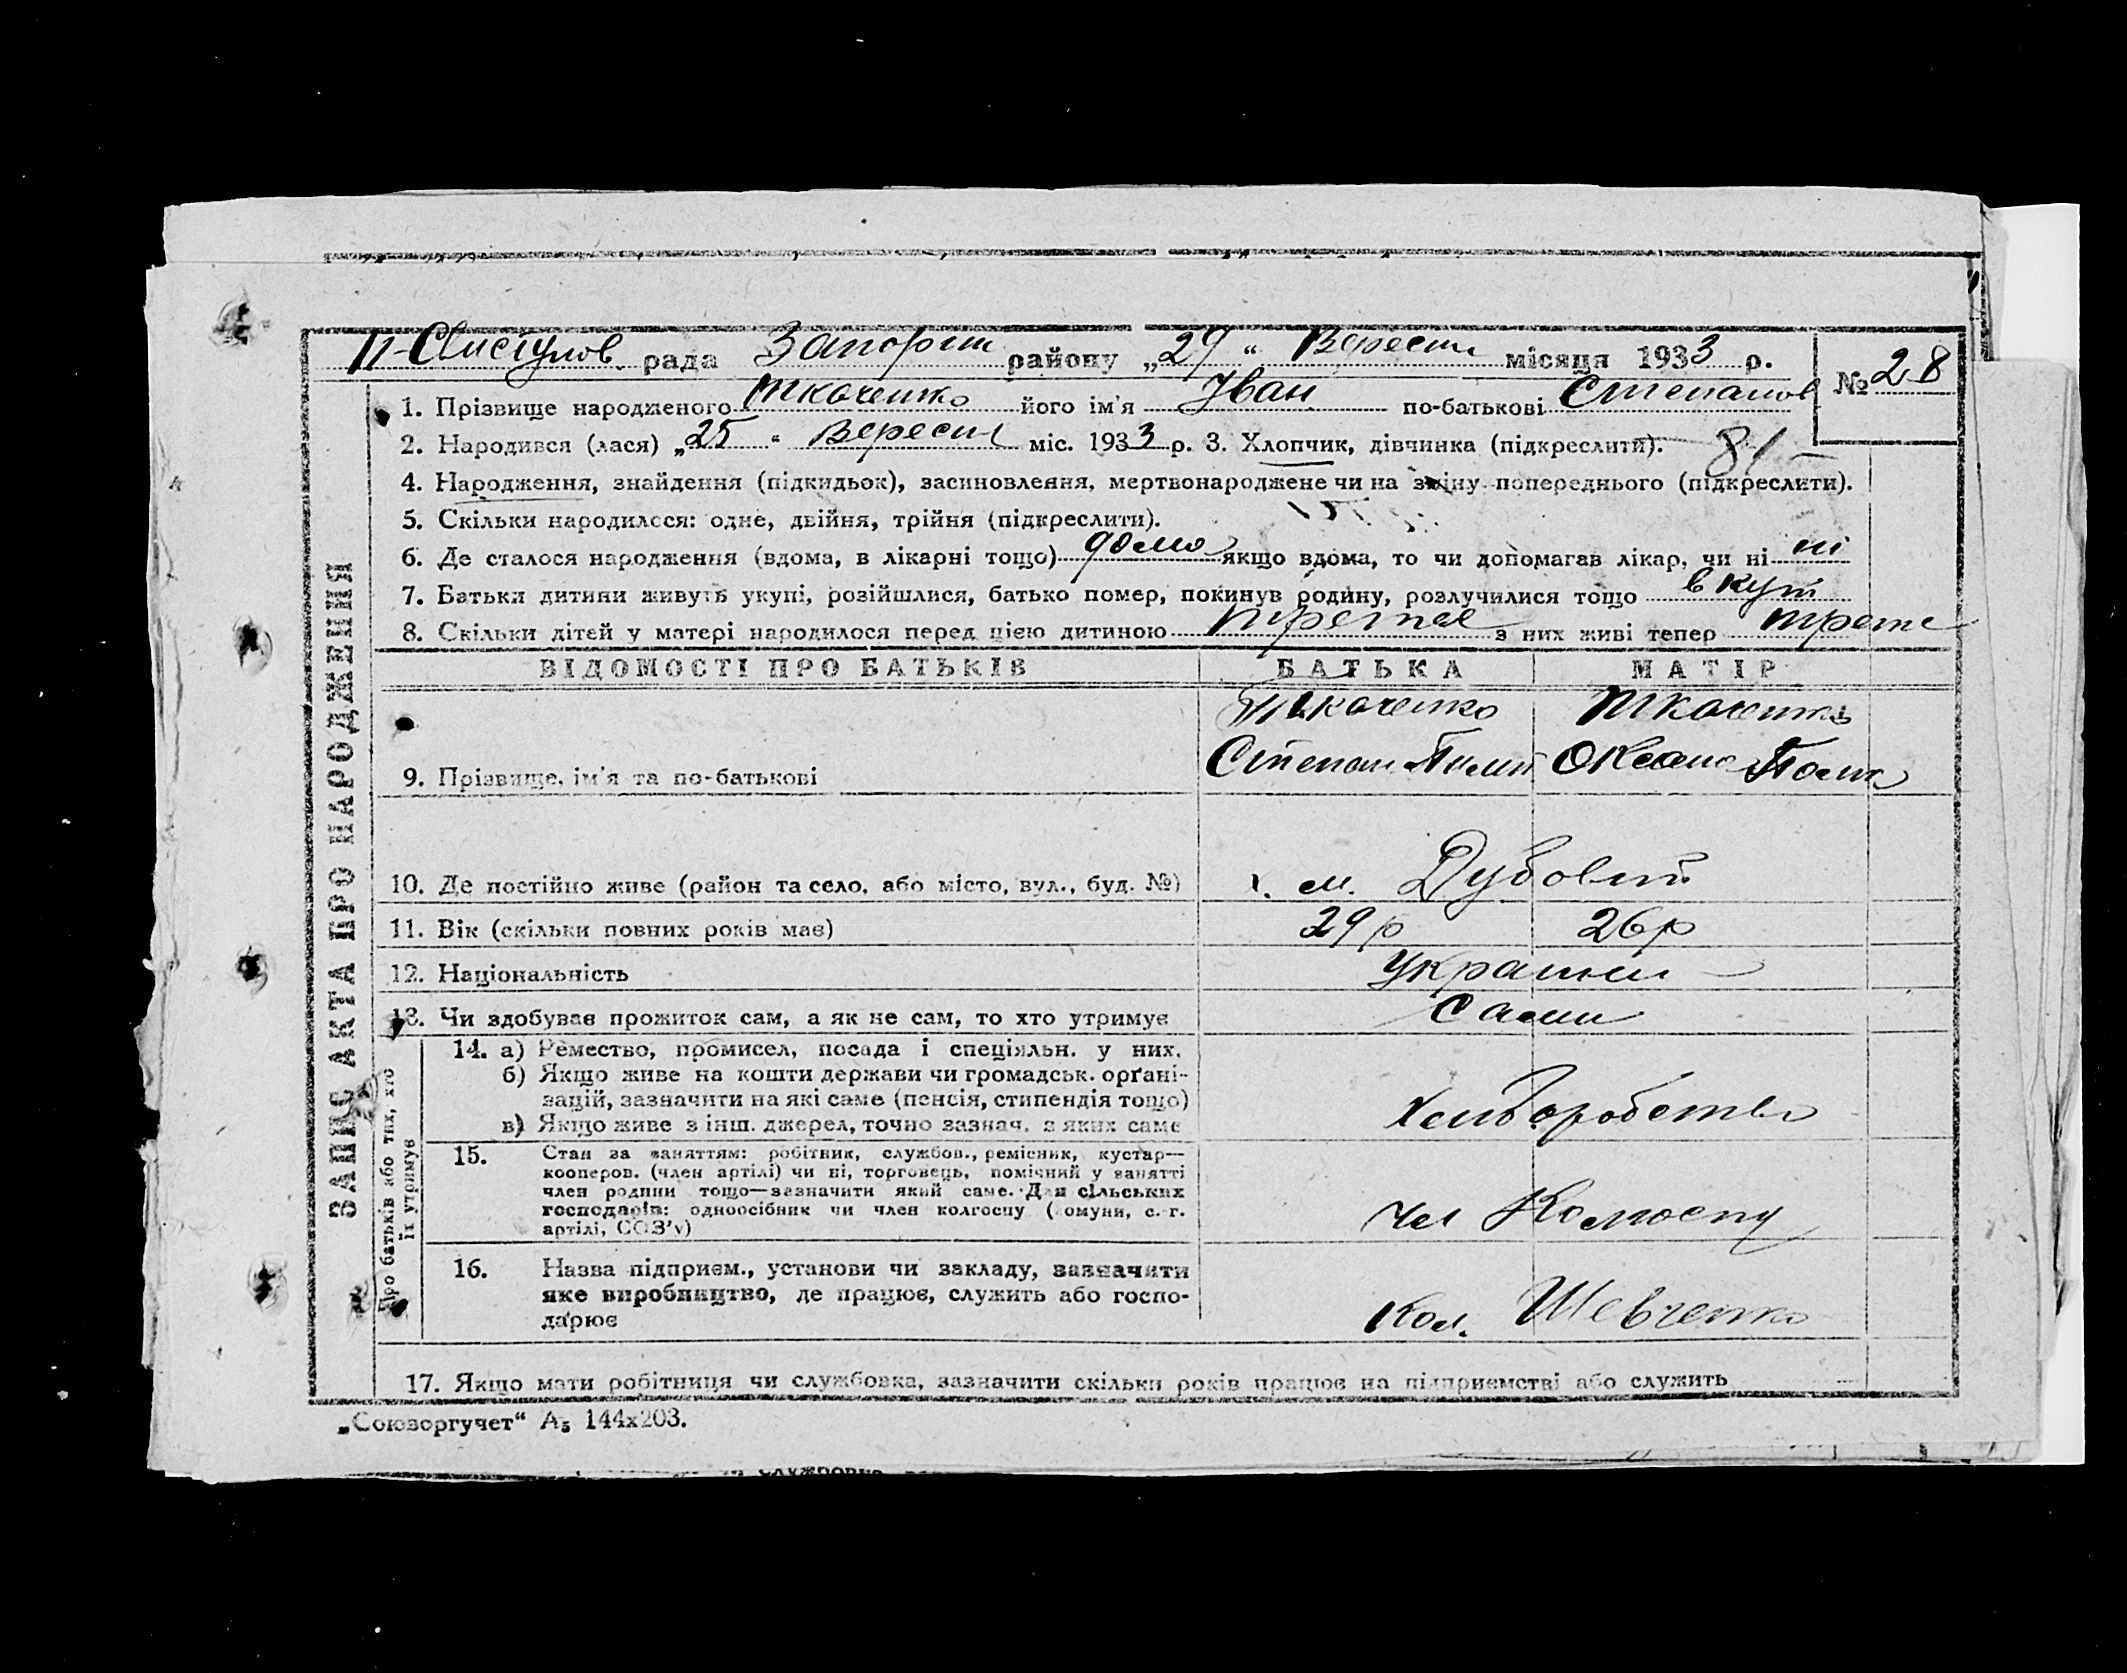 П-Свистулов рада Запоріж району „29“ Вересня місяця 1933 р. № 28
1. Прізвище народженого Ткаченко його ім'я Іван по-батькові Степанов
2. Народився (лася) „25“ Вересня міс. 1933 р. 3. Хлопчик, дівчинка (підкреслити). 81
4. Народження, знайдення (підкидьок), засиновлення, мертвонароджене чи на зміну попереднього (підкреслити).
5. Скільки народилося: одне, двійня, трійня (підкреслити).
6. Де сталося народження (вдома, в лікарні тощо) дома якщо вдома, то чи допомагав лікар, чи ні ні
7. Батьки дитини живуть укупі, розійшлися, батько помер, покинув родину, розлучилися тощо вкупі
8. Скільки дітей у матері народилося перед цією дитиною третє з них живі тепер третє
ВІДОМОСТІ ПРО БАТЬКІВ БАТЬКА МАТІР
Ткаченко Ткаченко
9. Прізвище, ім'я та по-батькові Степан Оксана
10. Де постійно живе (район та село, або місто, вул., буд. №) х. м. Дубовий
11. Вік (скільки повних років має) 29 р 26 р
12. Національність Україн
13. Чи здобуває прожиток сам, а як не сам, то хто утримує Сами
14. а) Ремество, промисел, посада і спеціяльн. у них.
б) Якщо живе на кошти держави чи громадськ. орґані-
зацій, зазначити на які саме (пенсія, стипендія тощо)
в) Якщо живе з інш. джерел, точно зазнач. з яких саме
Хліборобство
15. Стан за заняттям: робітник, службов., ремісник, кустар—
кооперов. (член артілі) чи ні, торговець, помічний у занятті
член родини тощо—зазначити який саме. Для сільських
господарів: одноосібник чи член колгоспу (комуни, с.-г.
артілі, СОЗ'у)
Чл Колгоспу
16. Назва підприєм., установи чи закладу, зазначити
яке виробництво, де працює, служить або госпо-
дарює
Кол. Шевченко
17. Якщо мати робітниця чи службовка, зазначити скільки років працює на підприємстві або служить
ЗАПИС АКТА ПРО НАРОДЖЕННЯ
Про батьків або тих, хто
їх утримує
„Союзоргучет“ А₅ 144х203.